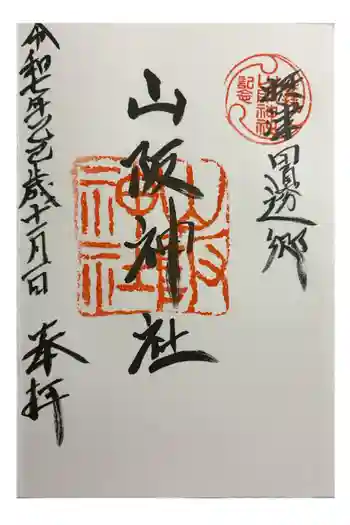 摂津田邊郷
山阪神社
令和七年乙巳歳十一月日 奉拝
山阪神社
山阪神社
記念